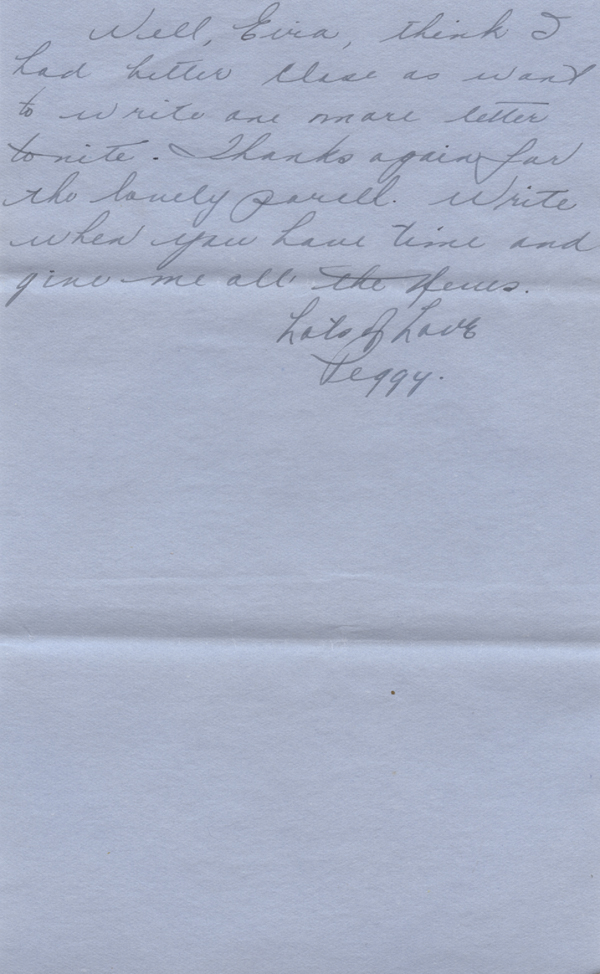 Well, Evra, think I
had better close as want
to write one more letter
tonite. Thanks again for
the lovely parell. Write
when you have time and
give me all the News.
Lots of Love
Peggy.